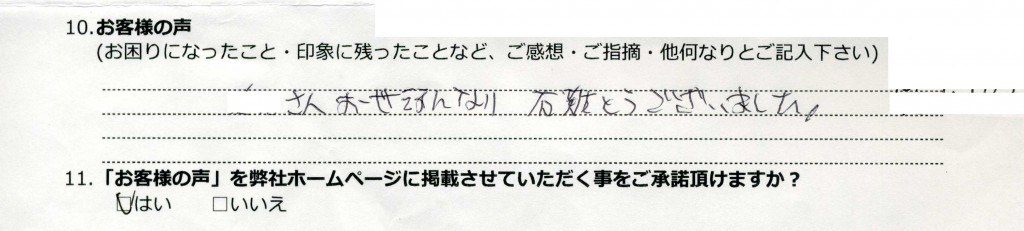 10.お客様の声
(お困りになったこと・印象に残ったことなど、ご感想・ご指摘・他何なりとご記入下さい)
さんお世話になり 有難とうございました。
11.「お客様の声」を弊社ホームページに掲載させていただく事をご承諾頂けますか？
☑はい □いいえ